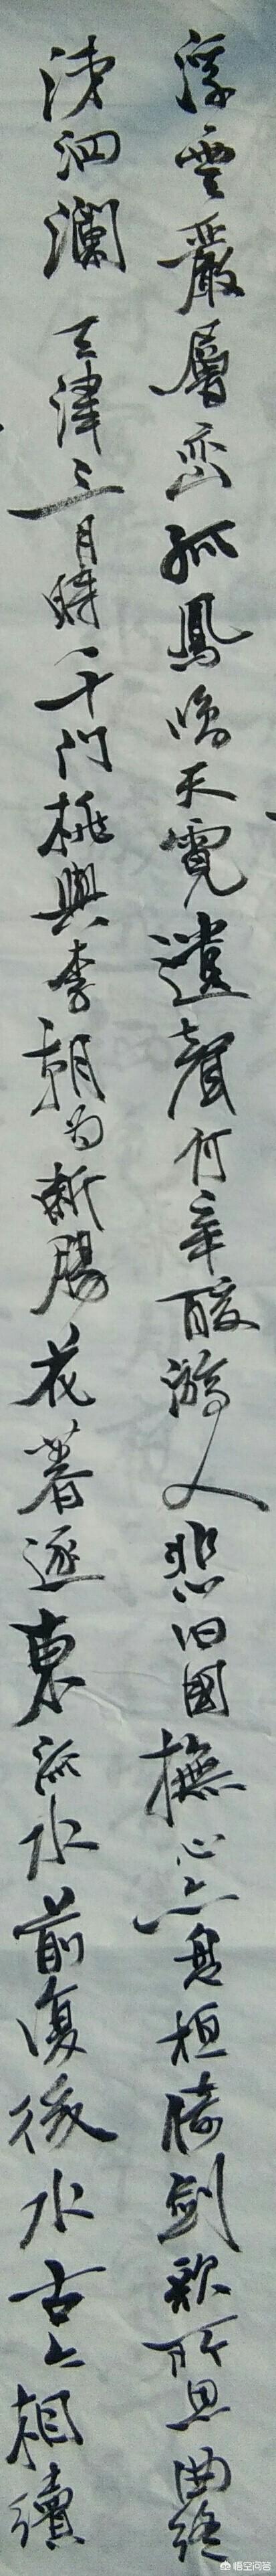 浮雲嚴層巒孤鳳鳴天霓遺聲何辛酸游人悲旧國撫心亦盤桓倚劍歌所思曲終
涕泗瀾 天津三月時千門桃與李朝为断腸花暮逐東流水前復後水古今相續
悟空问答